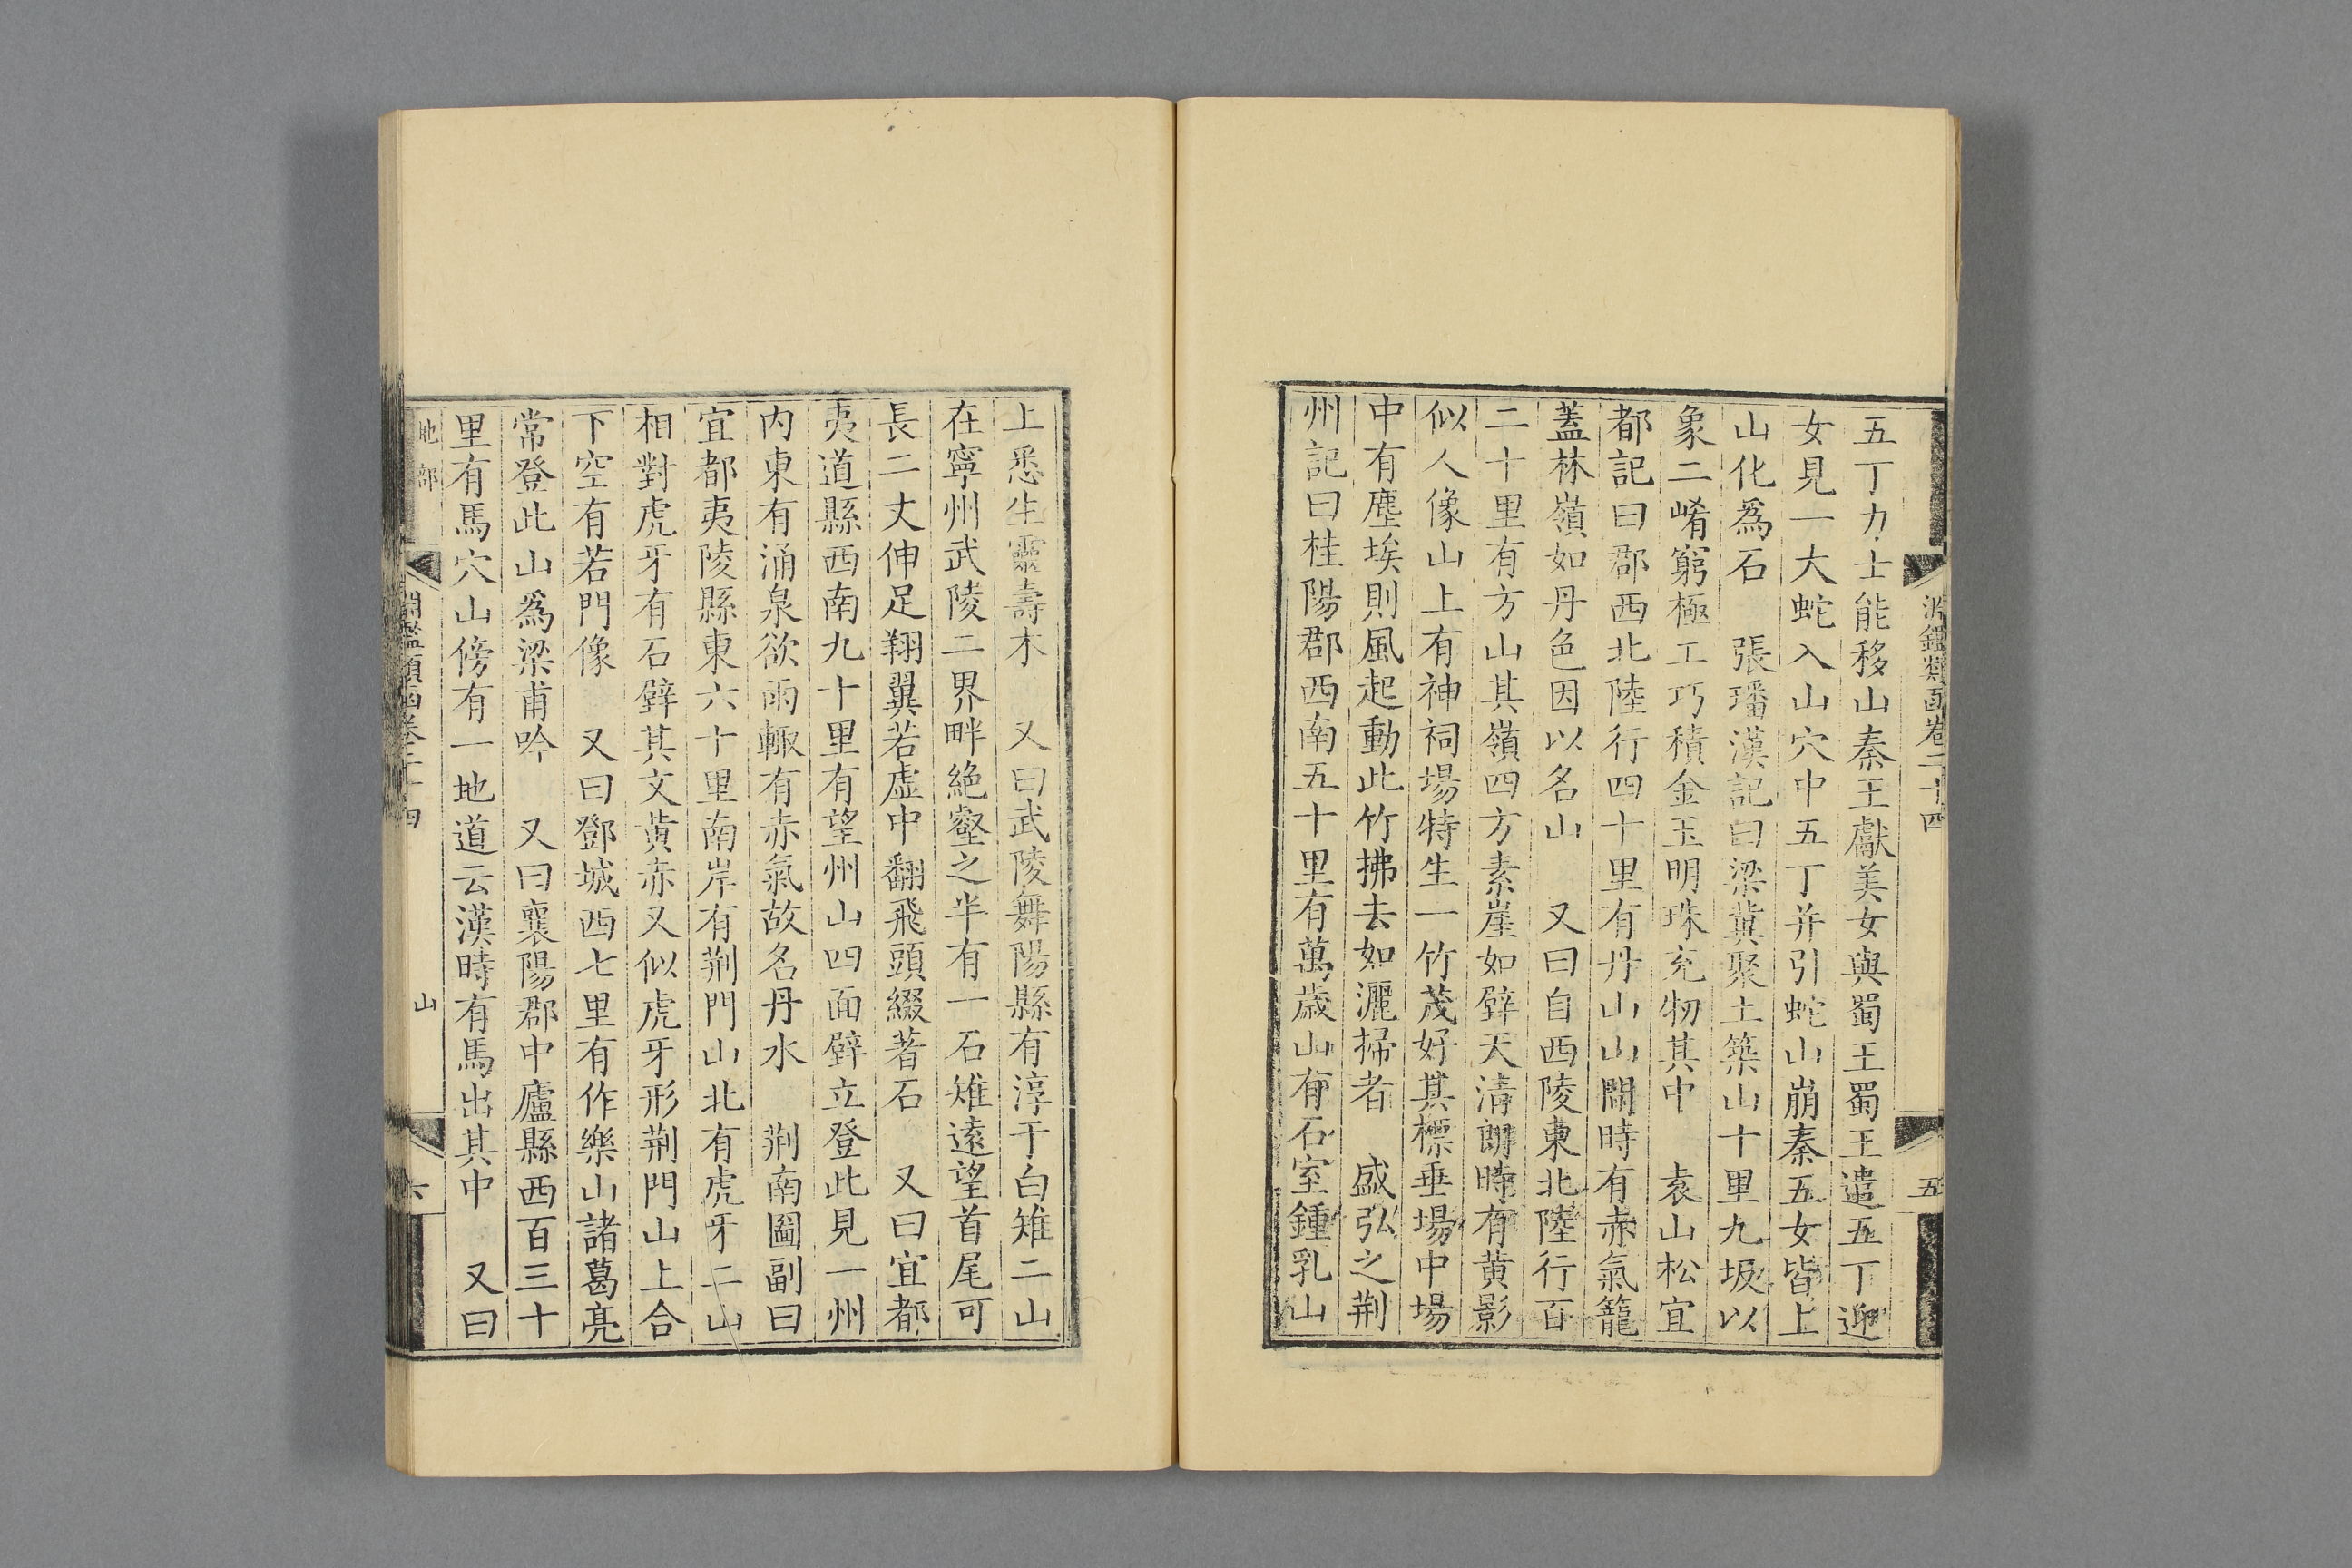 淵鑑類函卷二十四
五
五丁力士能移山秦王獻美女與蜀王蜀王遣五丁迎
女見一大蛇入山穴中五丁并引蛇山崩秦五女皆上
山化爲石　張璠漢記曰梁冀聚土築山十里九坂以
象二崤窮極工巧積金玉明珠充牣其中　袁山松宜
都記曰郡西北陸行四十里有丹山山閒時有赤氣籠
蓋林嶺如丹色因以名山　又曰自西陵東北陸行百
二十里有方山其嶺四方素崖如壁天清朗時有黄影
似人像山上有神祠場特生一竹茂好其標垂場中場
中有塵埃則風起動此竹拂去如灑掃者　盛弘之荆
州記曰桂陽郡西南五十里有萬歲山有石室鍾乳山
上悉生靈壽木　又曰武陵舞陽縣有淳于白雉二山
在寧州武陵二界畔絶壑之半有一石雉遠望首尾可
長二丈伸足翔翼若虚中翻飛頭綴著石　又曰宜都
夷道縣西南九十里有望州山四面壁立登此見一州
内東有涌泉欲雨輙有赤氣故名丹水　荆南圖副曰
宜都夷陵縣東六十里南岸有荆門山北有虎牙二山
相對虎牙有石壁其文黄赤又似虎牙形荆門山上合
下空有若門像　又曰鄧城西七里有作樂山諸葛亮
常登此山爲梁甫吟　又曰襄陽郡中廬縣西百三十
里有馬穴山傍有一地道云漢時有馬出其中　又曰
地部
淵鑑類函卷二十四
山
六